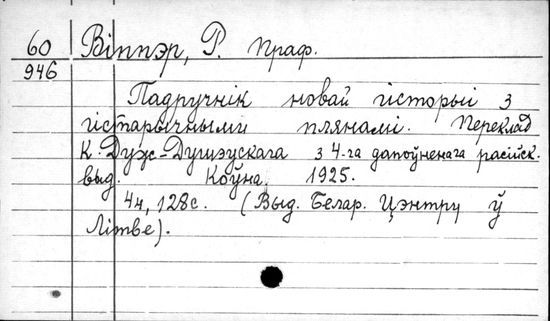 60 Віппэр, Р. праф.
946
Падручнік новай гісторыі з
гістарычнымі плянамі. Пераклад
К. Дуж-Душэускага з 4-га дапоўненага расійск.
выд. Коўна. 1925.
4н, 128с. (Выд. Белар. Цэнтру ў
Літве).